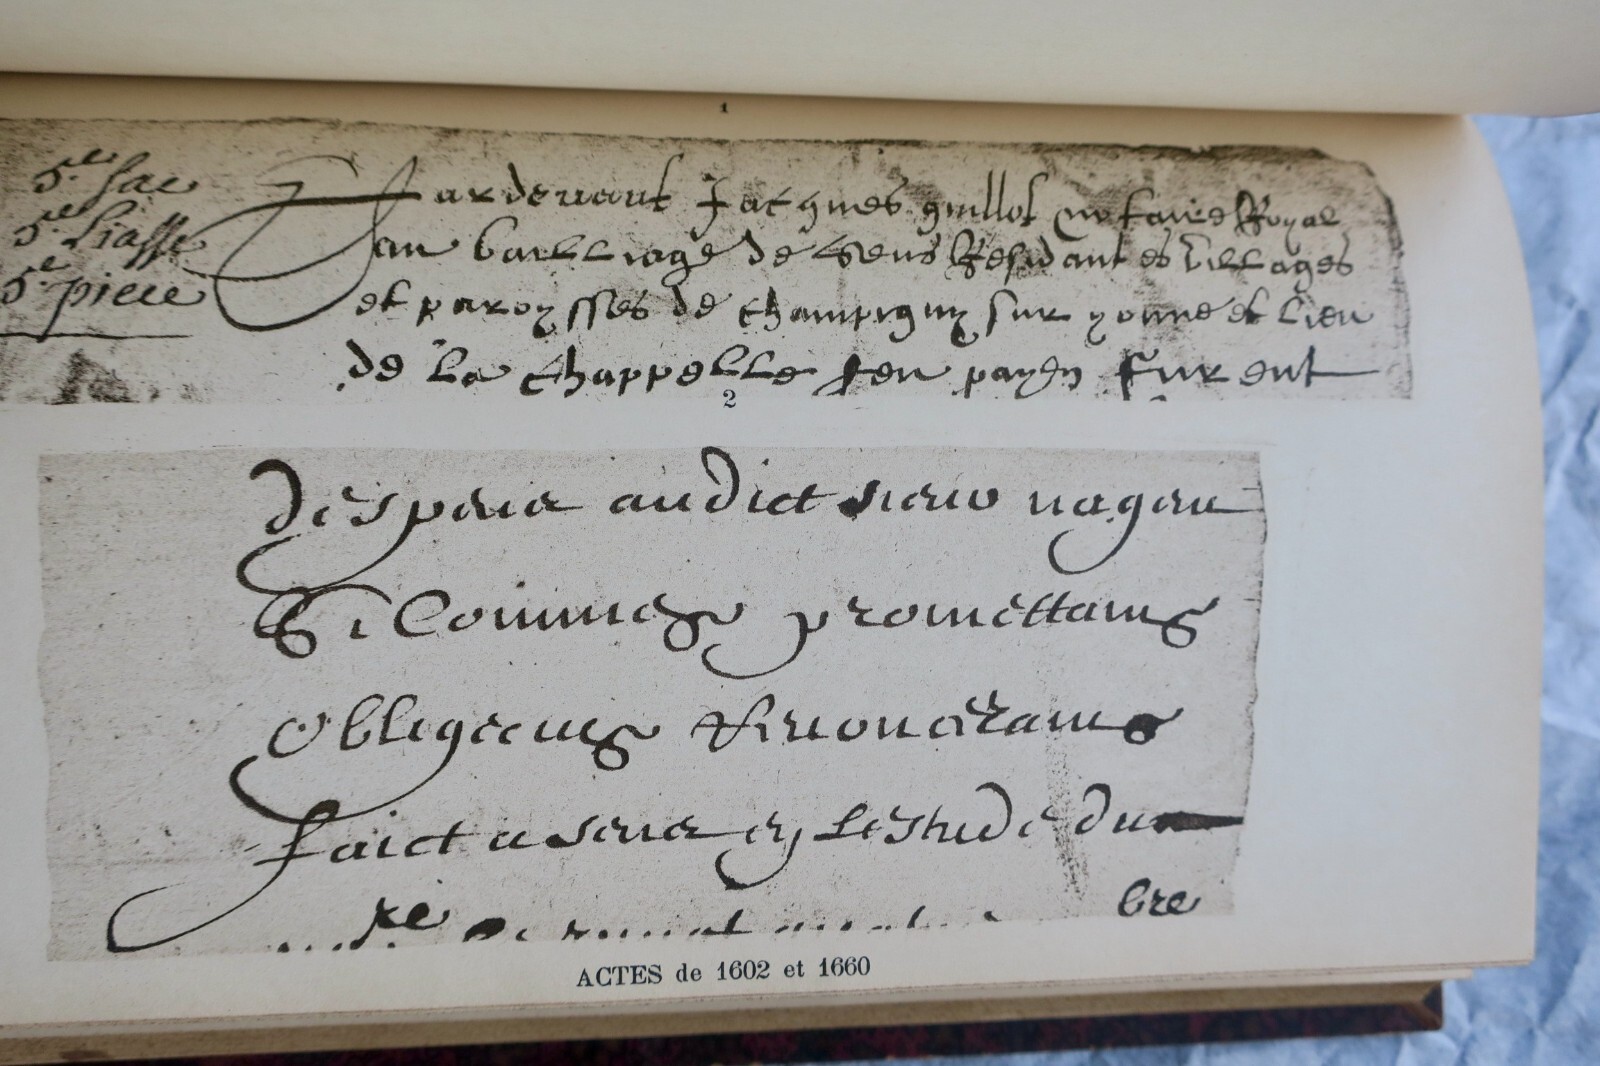 1
5.e sac
5.e Liasse
5.e piece
Pardevant Jacques guillot notaire Royal
au bailliage de Sens Residant es villages
et paroysses de champigny sur yonne et lieu
de la chappelle feu payen furent
2
audict sieur
promettans
Obligeans Renoncerans
faict a sens en Lestude du
re
bre
ACTES de 1602 et 1660